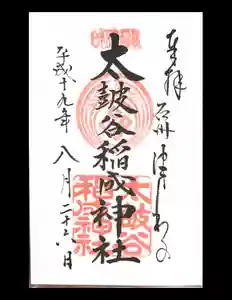 奉拝
石州 津わの
太皷谷稲成神社
平成十九年
八月二十六日
太皷谷
稲成神社